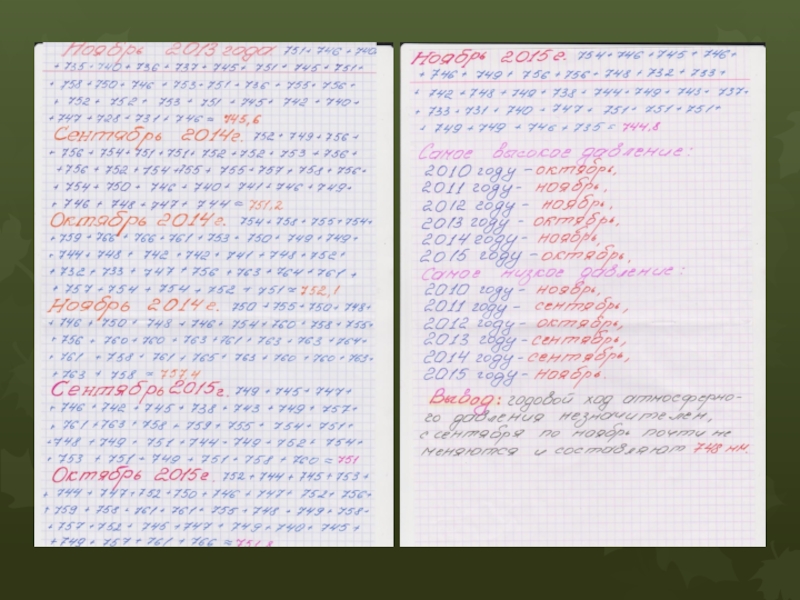 Ноябрь 2013 года 751+746+740
+735+740+736+737+745+ 751+745+751+
+758+750+746 +753+751+736+755+756+
+752+752+ 753 + 751 +745+ 742 +740+
+747 +728 +731+ 746 = 745,6
Сентябрь 2014г. 752+749+756+
+756+754+751+751+752+752+753+756+
+756+752+754+755+ 755+757+758+756+
+754+750+ 746+740+ 741+746+749+
+746 + 748+747+ 744 = 751,2
Октябрь 2014г. 754+758+755+754+
+759+766+766+761+753+ 750+749+749+
+744+748+ 742+742+741+748+752+
+732+733+ 747+756+763+764+761+
+757+754 +754+752 + 751=752,1
Ноябрь 2014г. 750+755+750+748+
+746+750+ 748+746+754+760+758+755+
+756+760+760+763+761+763+763+764+
+761 +758+761+765+763+760+760+763+
+763 + 758 = 757,4
Сентябрь 2015г. 749+745+747+
+746+742+745+738+743+749+757+
+761+763+758+759+755+754+751+
+748+749+ 751+744+749+752+ 754+
+753 +751+749 +751+758+ 760=751
Октябрь 2015г. 752+744+745+753+
+744+747+752+750+746+747+ 752+756+
+759+758+761+761+755+748+749+758+
+757+752+ 745+747+ 749+740+745+
+749+757+761+ 766 = 751,8
Ноябрь 2015г. 754+746+745+746+
+746+ 749 + 756+756+748+732+733+
+742+748+749+738+744+749+743+737+
+733+731+740+747+ 751+751+751+
+749+749 +746+735=744,8
Самое высокое давление:
2010 году - октябрь,
2011 году - ноябрь,
2012 году - ноябрь,
2013 году - октябрь,
2014 году - ноябрь,
2015 году - октябрь,
Самое низкое давление:
2010 году - ноябрь,
2011 году - сентябрь,
2012 году - октябрь,
2013 году - сентябрь,
2014 году - сентябрь,
2015 году - ноябрь.
Вывод: годовой ход атмосферно-
го давления незначителен,
с сентября по ноябрь почти не
меняются и составляют 748 мм.